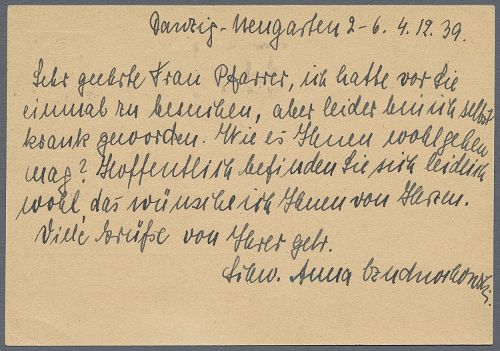 Danzig-Neugarten 2-6. 4.12.39.
Sehr geehrte Frau Pfarrer, ich hatte vor Sie
einmal zu besuchen, aber leider bin ich selbst
krank geworden. Wie es Ihnen wohl gehen
mag? Hoffentlich befinden Sie sich leidlich
wohl, das wünsche ich Ihnen von Herzen.
Viele Grüße von Ihrer gebr.
Schw. Anna